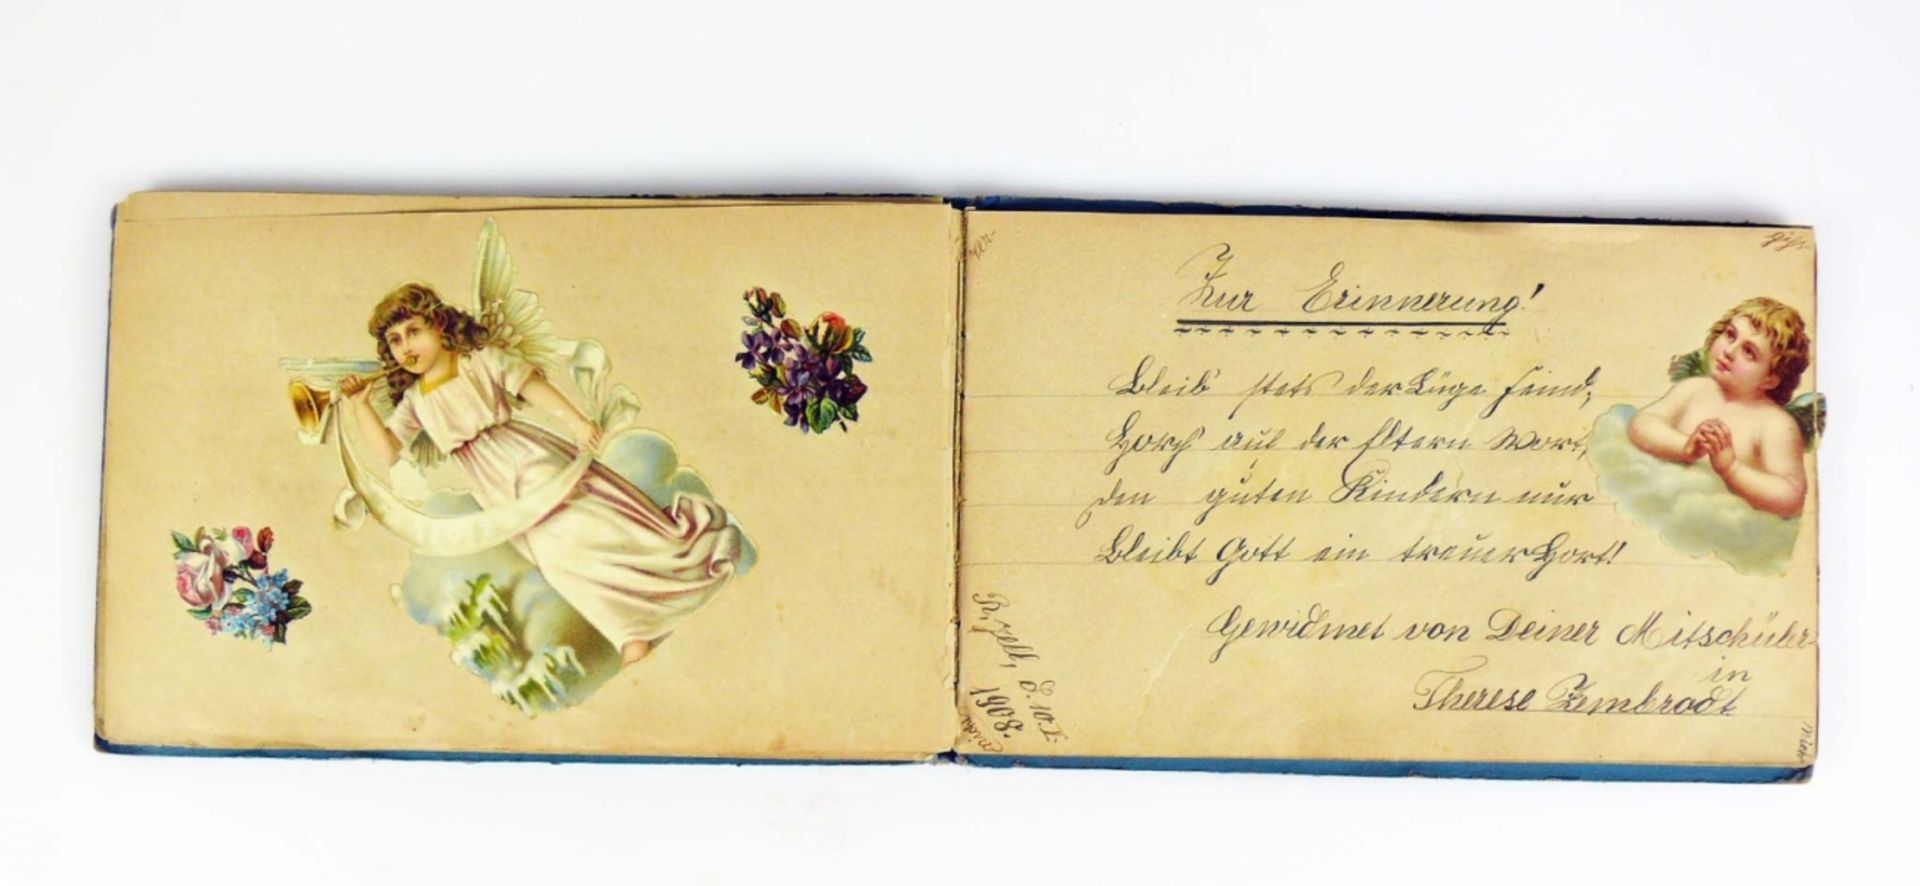 Zur Erinnerung!
Bleib' stets der Lüge Feind,
Horch' auf der Eltern Wort,
Den guten Kindern nur
Bleibt Gott ein treuer Hort!
Gewidmet von Deiner Mitschüler-
in
Therese Zembrodt
R.zell, d. 10.I.
1908.